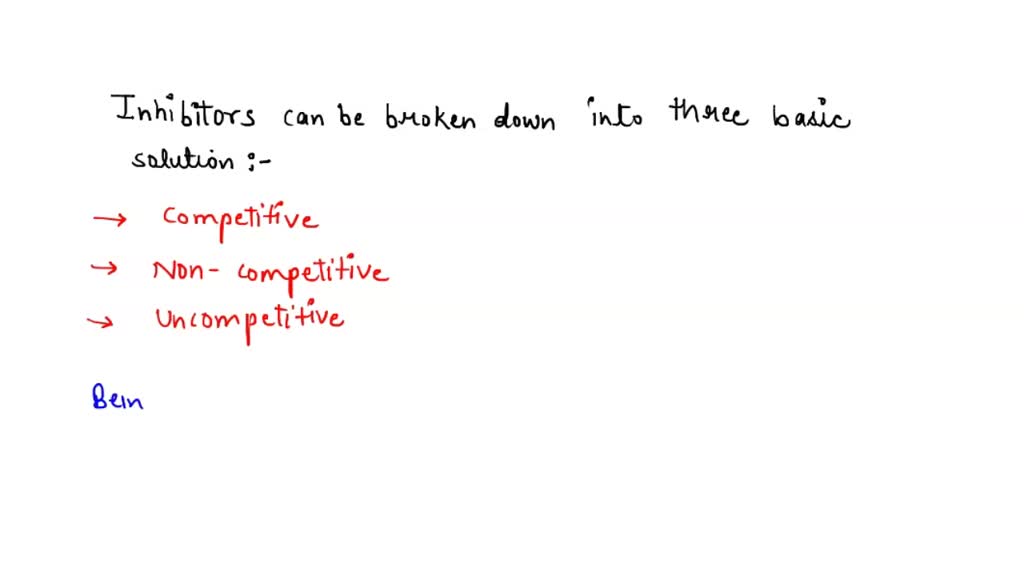 Inhibitors can be broken down into three basic
solution :-
→ Competitive
→ Non-competitive
→ Uncompetitive
Bein